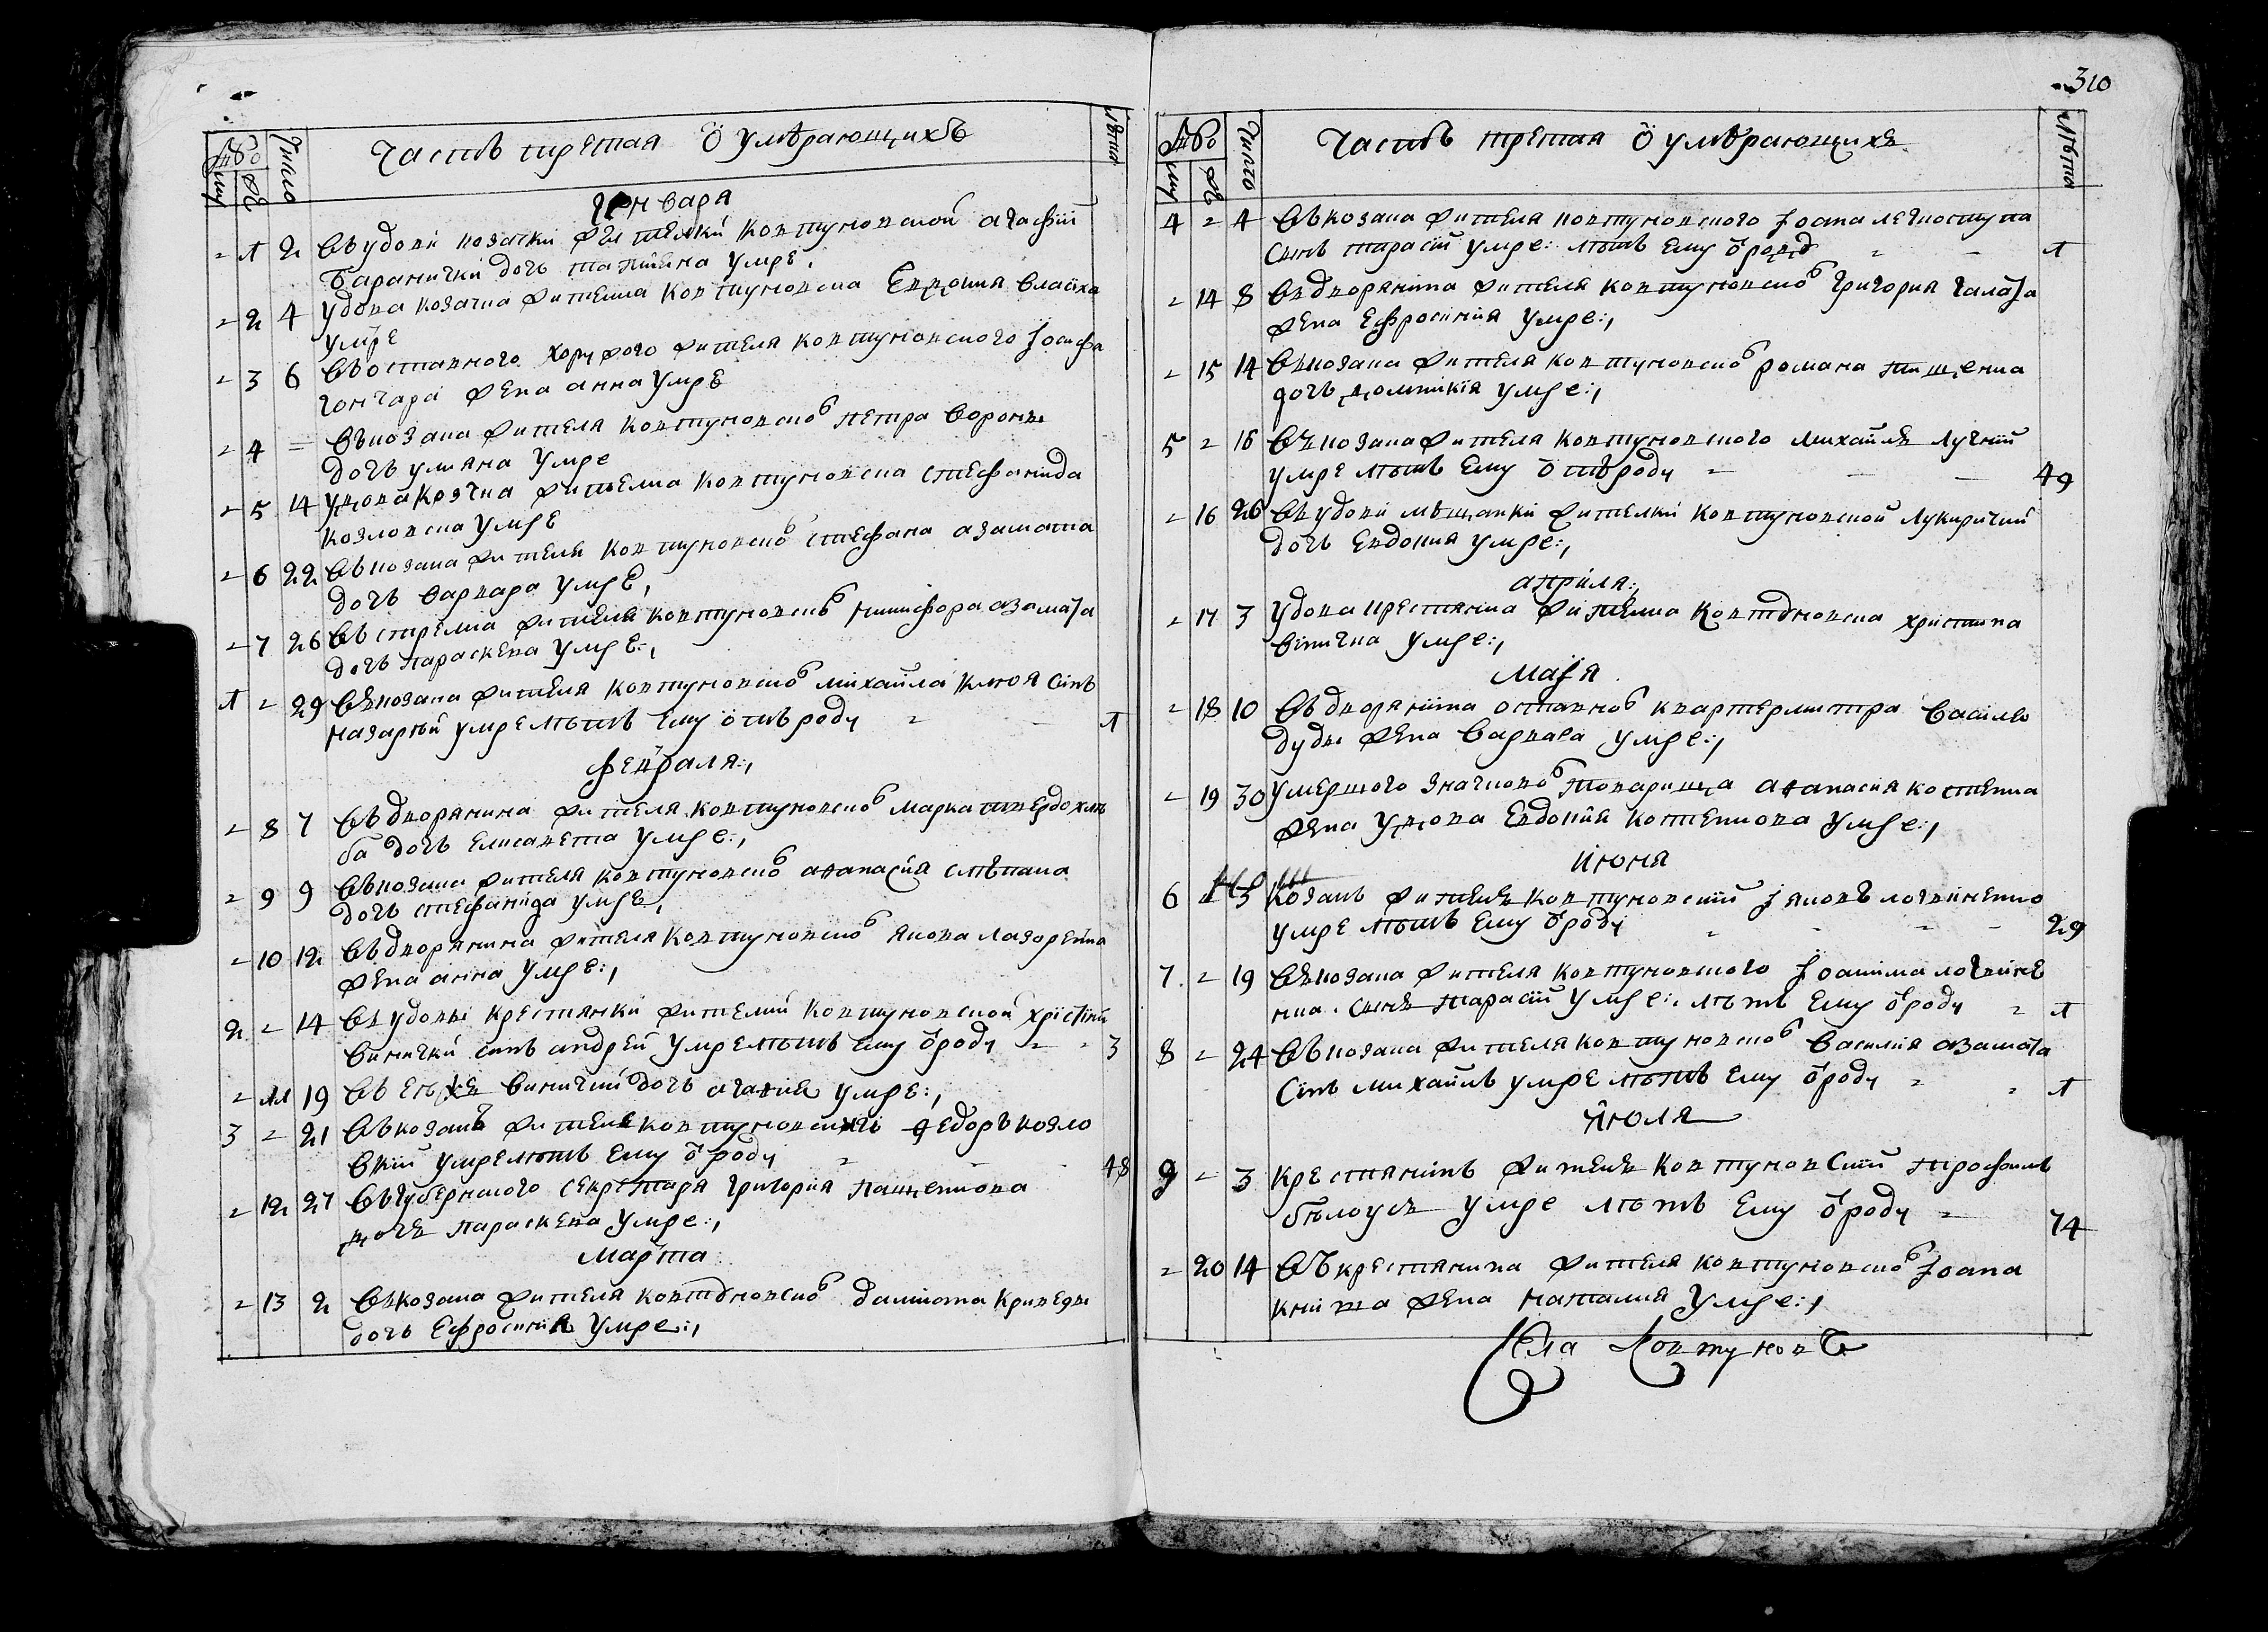 Часть третая о умѣрающихъ
Число
лѣта
Генваря
1 2 Въ удови козачки жителки Ковтуновской Агафии
Баранички дочь Татияна умре
2 4 Удова козачка жителка Ковтуновска Евдокия Власиха
умре
3 6 Въ оставного хорунжого жителя Ковтуновского Иосифа
Гончара жена Анна умре
4 Въ козака жителя Ковтуновског Петра Вороны
дочь Уляна умре
5 14 Удова козачка жителка Ковтуновска Стефанида
Козловска умре
6 22 Въ козака жителя Ковтуновског Стефана Азамата
дочь Варвара умре
7 26 Въ стрелка жителя Ковтуновског Никифора Азамата
дочь Параскева умре
1 29 Въ козака жителя Ковтуновског Михаила Клюя синъ
Назарий умре лѣтъ ему отъ роду 1
Февраля
8 7 Въ дворянина жителя Ковтуновског Марка Твердохлѣ
ба дочь Елисавета умре
9 9 Въ козака жителя Ковтуновског Афанасия Слѣпака
дочь Стефанида умре
10 12 Въ дворянина жителя Ковтуновског Якова Лазоренка
жена Анна умре
2 14 Въ удовы крестянки жителки Ковтуновской Христини
Винички синъ Андрей умре лѣтъ ему о роду 3
11 19 Въ еи же Винички дочь Агафия умре
3 21 Въ козакъ житель Ковтуновски Федоръ Козло
вкий умре лѣтъ ему о роду 48
12 27 Въ губернского секретара Григория Пащенкова
дочь Параскева умре
Марта
13 2 Въ козака жителя Ковтуновског Данилота Криведы
дочь Ефросиния умре
310
Часть третая о умѣрающихъ
Число
Лѣта
4 4 Въ козака жителя Ковтуновского Иоана Легкоступа
синъ Тарасий умре лѣтъ ему о родд 1
14 8 Въ дворянина жителя Ковтуновског Григория Галата
жена Ефросиния умре
15 14 Въ козака жителя Ковтуновског Романа Тищенка
дочь Домникия умре
5 16 Въ козака жителя Ковтуновского Михаилъ Лучний
умре лѣтъ ему отъ роду 49
16 26 Въ удови мѣщанки жителки Ковтуновской Лукирички
дочь Евдокия умре
Априля
17 3 Удова крестянка жителка Ковтуновска Христина
Вѣничка умре
Маия
18 10 Въ дворянина оставног квартермистра Василя
Дуды жена Варвара умре
19 30 Умершого значкового товарища Афанасия Костенка
жена удова Евдокия Костенкова умре
Июня
6 3 Козакъ житель Ковтуновский Яковъ Логвиненко
умре лѣтъ ему о роду 29
7 19 Въ козака жителя Ковтуновского Иоакима Логвине
нка синъ Тарасий умре лѣтъ ему о роду 1
8 24 Въ козака жителя Ковтуновског Василия Азамата
синъ Михаилъ умре лѣтъ ему о роду 1
Июля
9 3 Крестянинъ житель Ковтуновский Трофимъ
Бѣлоусъ умре лѣтъ ему о роду 74
20 14 Въ крестянина жителя Ковтуновског Иоана
Книша жена Наталия умре
Села Ковтуновъ